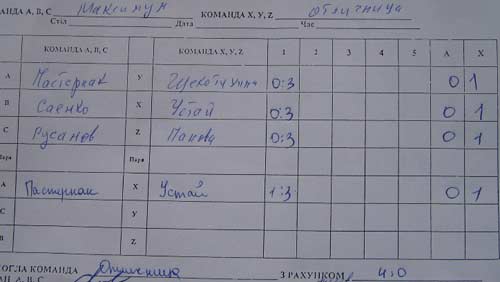 АНДА А, В, С Максимум КОМАНДА X, Y, Z отличница
Стіл Дата Час
КОМАНДА А, В, С КОМАНДА X, Y, Z 1 2 3 4 5 А Х
А Пастернак У 0:3 0 1
В Саенко Х Устай 0:3 0 1
С Русанов Z Панова 0:3 0 1
Пара Пара
А Пастернак Х Устай 1:3 0 1
С У
В Z
МОГЛА КОМАНДА Отличница З РАХУНКОМ 4:0